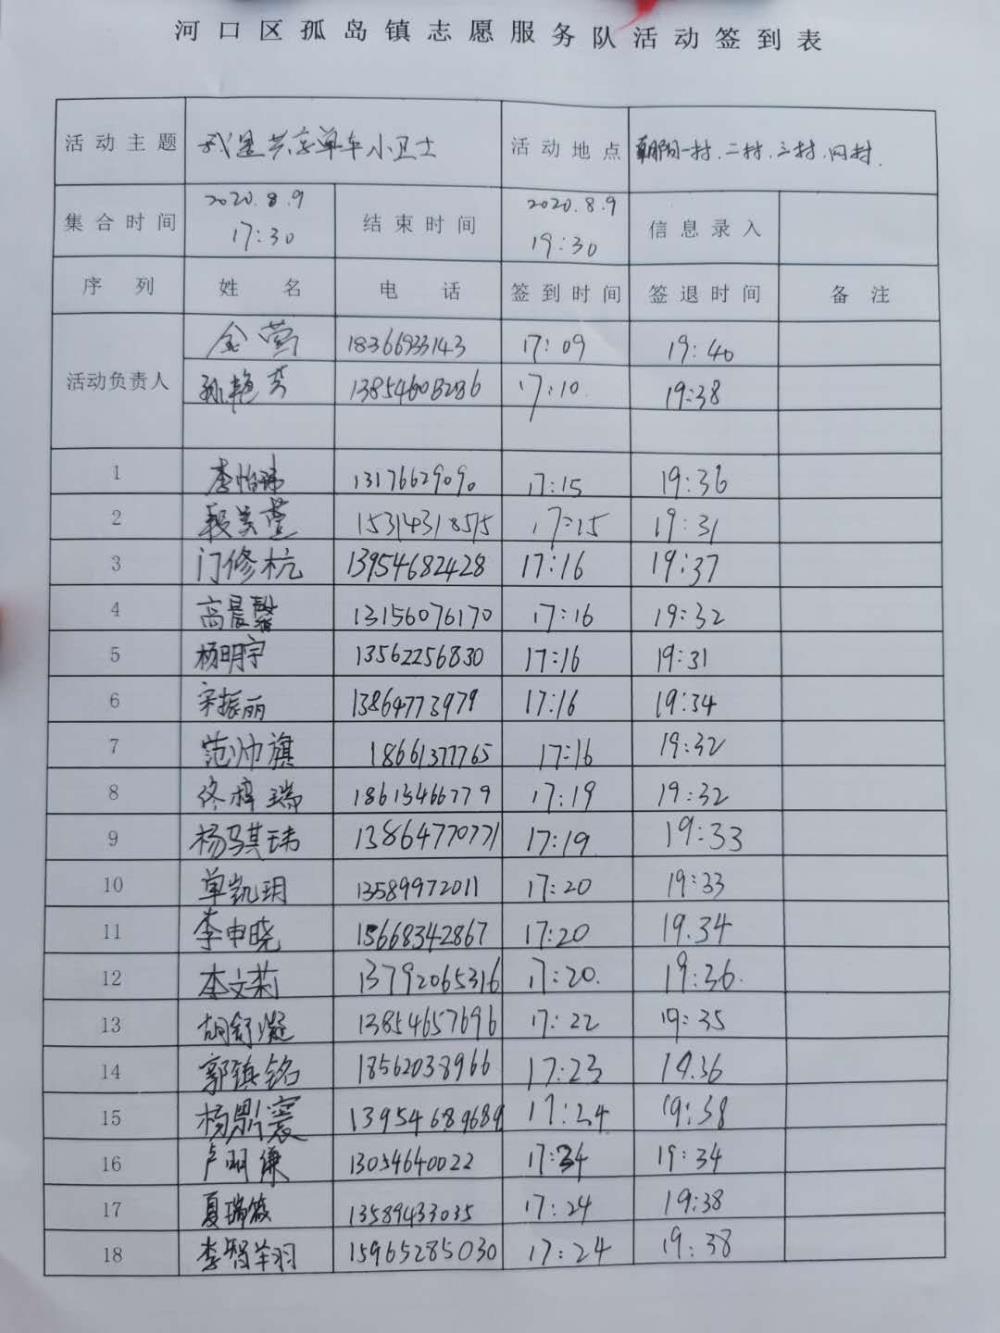 河口区孤岛镇志愿服务队活动签到表
活动主题 我是共享单车小卫士 活动地点 朝阳一村、二村、三村、四村.
集合时间 2020.8.9 17:30 结束时间 2020.8.9 19:30 信息录入
序列 姓名 电话 签到时间 签退时间 备注
活动负责人 金莺 18366933143 17:09 19:40
孙艳芳 13854608286 17:10 19:38
1 李怡 13176629090 17:15 19:36
2 15314318575 17:15 19:31
3 门修杭 13954682428 17:16 19:37
4 高晨馨 13156076170 17:16 19:32
5 杨明宇 13562256830 17:16 19:31
6 宋振丽 13864773979 17:16 19:34
7 范帅旗 18661377765 17:16 19:32
8 佟梓瑞 18615466779 17:19 19:32
9 杨骐玮 13864770771 17:19 19:33
10 单凯玥 13589972011 17:20 19:33
11 李申晓 15668342867 17:20 19.34
12 李文莉 13792065316 17:20. 19:36.
13 胡舒凝 13854657696 17:22 19:35
14 郭镇铭 18562038966 17:23 19.36
15 杨鼎寰 13954689689 17:24 19:38
16 卢明谦 13054640022 17:34 19:34
17 夏瑞 13589433035 17:24 19:38
18 李智羽 15965285030 17:24 19:38